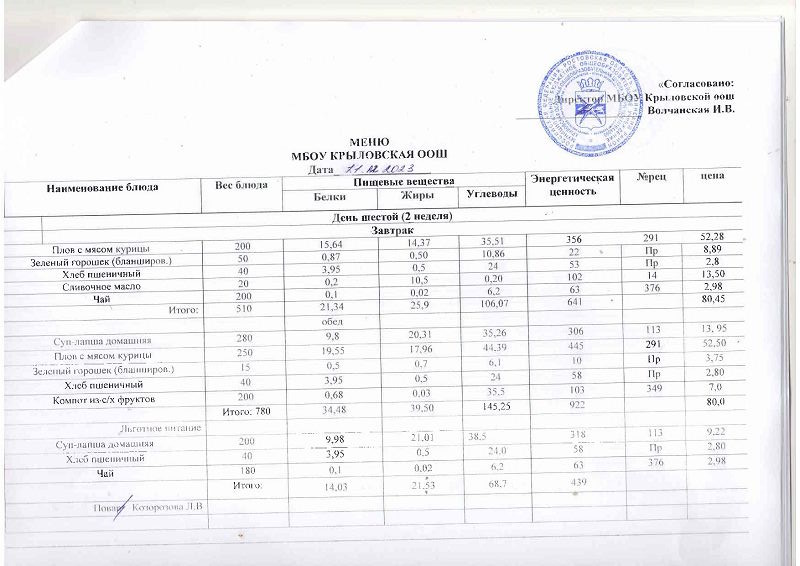 «Согласовано:
Директор МБОУ Крыловской оош
Волчанская И.В.
МЕНЮ
МБОУ КРЫЛОВСКАЯ ООШ
Дата 11.12.2023
Наименование блюда Вес блюда Пищевые вещества Энергетическая ценность №рец цена
Белки Жиры Углеводы
День шестой (2 неделя)
Завтрак
Плов с мясом курицы 200 15,64 14,37 35,51 356 291 52,28
Зеленый горошек (бланширов.) 50 0,87 0,50 10,86 22 Пр 8,89
Хлеб пшеничный 40 3,95 0,5 24 53 Пр 2,8
Сливочное масло 20 0,2 10,5 0,20 102 14 13,50
Чай 200 0,1 0,02 6,2 63 376 2,98
Итого: 510 21,34 25,9 106,07 641 80,45
обед
Суп-лапша домашняя 280 9,8 20,31 35,26 306 113 13, 95
Плов с мясом курицы 250 19,55 17,96 44,39 445 291 52,50
Зеленый горошек (бланширов.) 15 0,5 0,7 6,1 10 Пр 3,75
Хлеб пшеничный 40 3,95 0,5 24 58 Пр 2,80
Компот из-с/х фруктов 200 0,68 0,03 35,5 103 349 7,0
Итого: 780 34,48 39,50 145,25 922 80,0
Льготное питание
Суп-лапша домашняя 200 9,98 21,01 38,5 318 113 9,22
Хлеб пшеничный 40 3,95 0,5 24,0 58 Пр 2,80
Чай 180 0,1 0,02 6,2 63 376 2,98
Итого: 14,03 21,53 68,7 439
Повар Козорозова Л.В